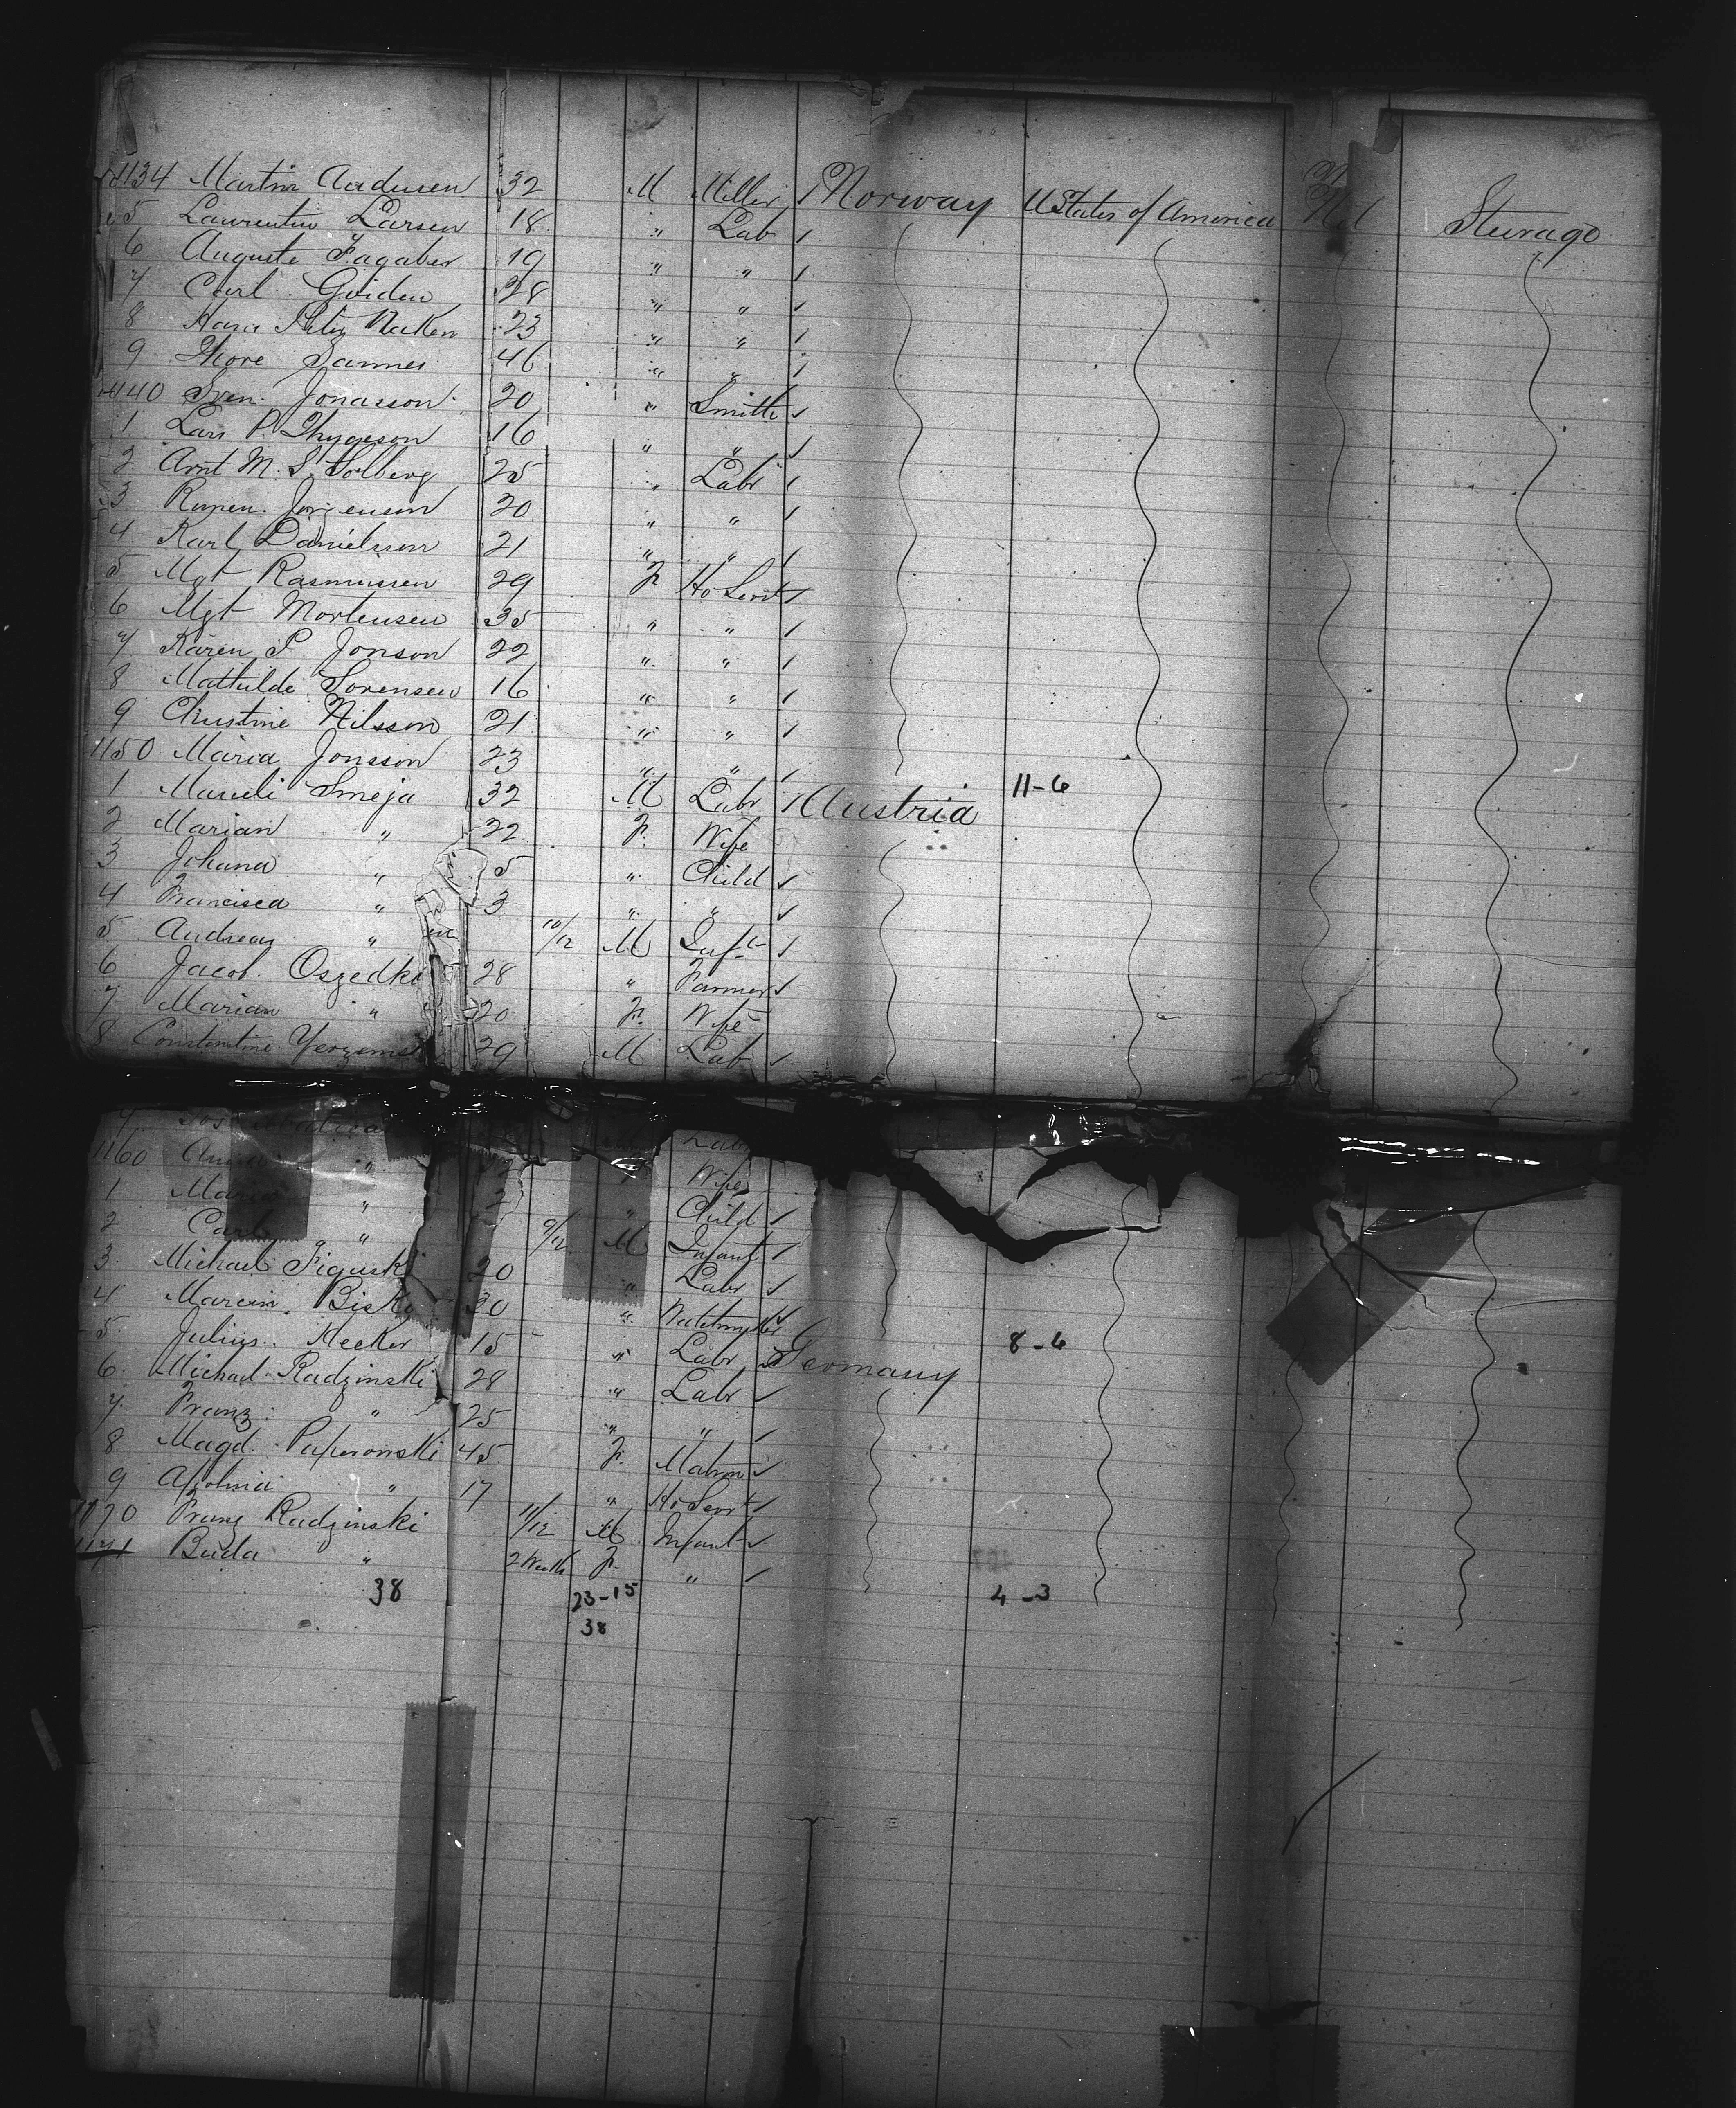 1134 Martin Aadusen 32 M Miller / Norway U States of America Nil Sturago
5 Laurentin Larsen 18 " Lab /
6 Auguste Fagaber 19 " " /
7 Carl Guiden 28 " " /
8 Hans 23 " " /
9 Thore Sannes 46 " " /
1140 Sven Jonasson 20 " Smith ✓
1 Lars P. Thygeson 16 " " ✓
2 Arnt M. S. Solberg 25 " Labr /
3 Jorgenson 20 " " /
4 Karl Danielsson 21 " " /
5 Mgt Rasmussen 29 F. Ho Servt /
6 Mgt Mortensen 35 " " /
7 Karen P Jonson 22 " " /
8 Mathilde Sorensen 16 " " /
9 Christine Nilsson 21 " " /
1150 Maria Jonsson 23 " " /
1 Smeja 32 M Labr / Austria 11-6
2 Marian " 22 F. Wife
3 Johana " 5 " Child ✓
4 Francisca " 3 " " ✓
5 Andreas " 10/12 M Inft /
6 Jacob Oszedki 28 " Farmer ✓
7 Marian " 20 F. Wife
8 Constantine 29 M Lab ✓
9 M Lab
1160 " Wife
1 Maria " 2 " Child ✓
2 " 9/12 M Infant /
3 Michael Figuski 20 " Labr ✓
4 Marcin Bisko 30 "
5 Julius Hecker 15 " Labr Germany 8-6
6 Michael Radzinski 28 " Labr ✓
7 Franz " 25 " " ✓
8 Magd. Paperowski 45 F. Matron ✓
9 Apolnia " 17 " Ho Servt ✓
1170 Franz Radzinski 11/12 M Infant ✓
1171 Buda " 2 Weeks F. " ✓
38 23-15 4-3
38